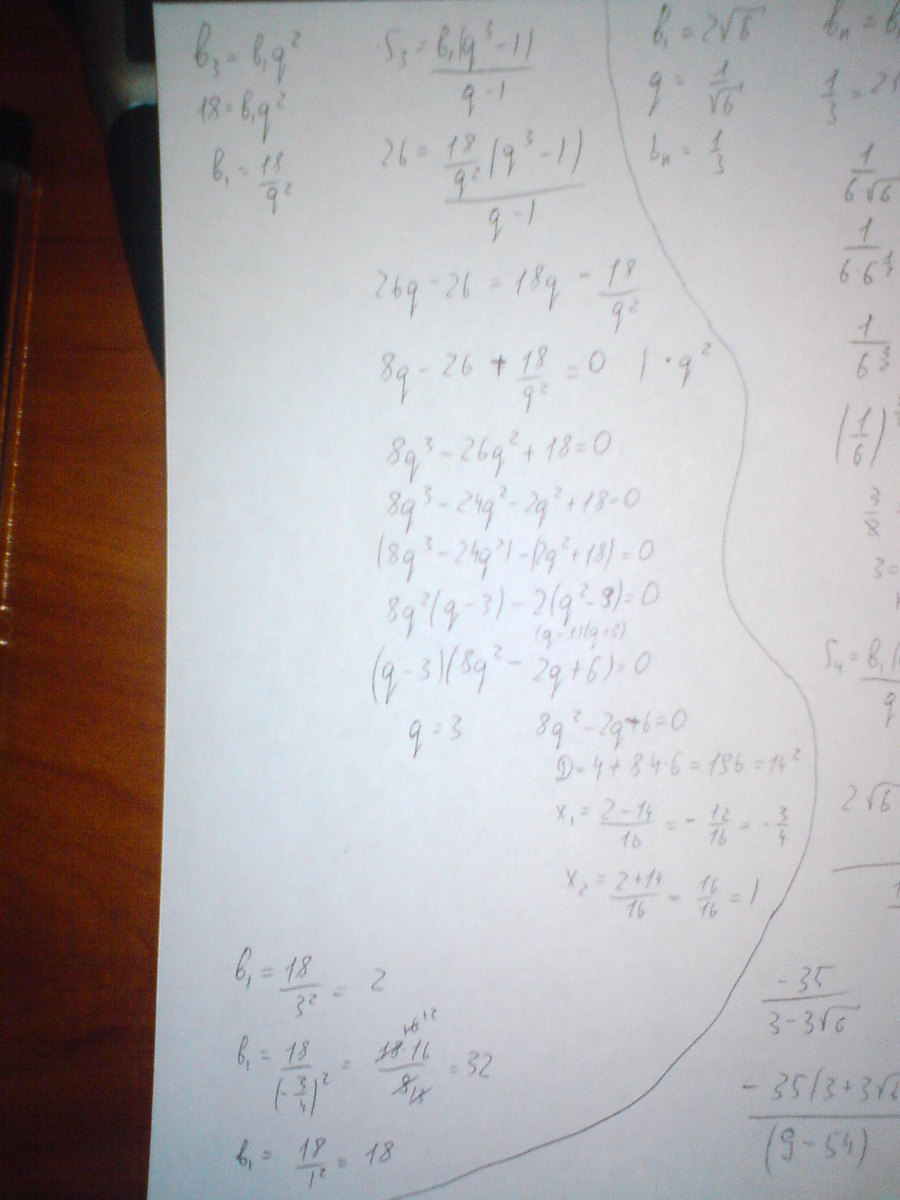 b₃ = b₁q²
18 = b₁q²
b₁ = 18/q²
S₃ = b₁(q³-1)/(q-1)
26 = 18/q² (q³-1)/(q-1)
26q - 26 = 18q - 18/q²
8q - 26 + 18/q² = 0 | · q²
8q³ - 26q² + 18 = 0
8q³ - 24q² - 2q² + 18 = 0
(8q³ - 24q²) - (2q² + 18) = 0
8q²(q-3) - 2(q²-9) = 0
(q-3)(q+3)
(q-3)(8q² - 2q + 6) = 0
q = 3 8q² - 2q + 6 = 0
D = 4 + 8·4·6 = 196 = 14²
x₁ = (2-14)/16 = -12/16 = -3/4
x₂ = (2+14)/16 = 16/16 = 1
b₁ = 18/3² = 2
b₁ = 18/(-3/4)² = 18·16/9 = 32
b₁ = 18/1² = 18
b₁ = 2√6
q = 1/√6
bₙ = 1/3
bₙ = b
1/3 = 2√
1/(6√6)
1/(6·6
1/6
(1/6)
3
3 =
S₄ = b₁(
q
2√6
1
-35/(3-3√6)
-35(3+3√6
(9-54)